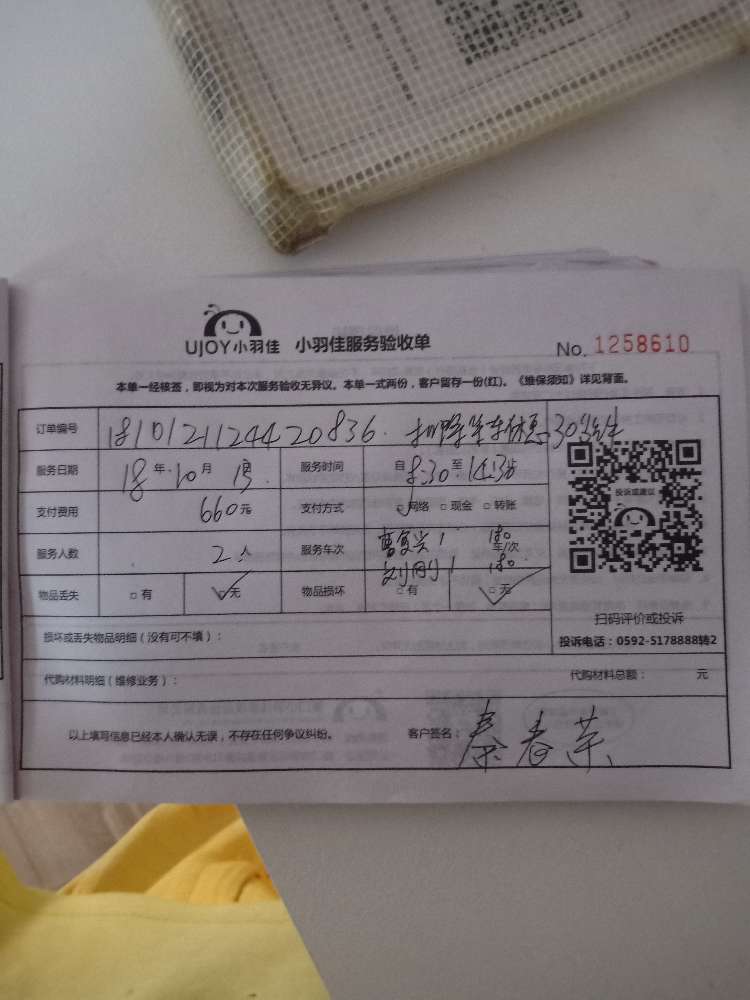 UJOY小羽佳 小羽佳服务验收单 No. 1258610
本单一经核签，即视为对本次服务验收无异议。本单一式两份，客户留存一份(红)。《维保须知》详见背面。
订单编号 181012112442083​6.
服务日期 18年10月 日 服务时间 自8:30至14:30
支付费用 660元 支付方式 网络 □现金 □转账
投诉或建议
服务人数 2人 服务车次 曹复兴 1 180 车/次
刘刚 1 180
物品丢失 □有 □无 物品损坏 □有 □无
扫码评价或投诉
损坏或丢失物品明细（没有可不填）： 投诉电话：0592-5178888转2
代购材料明细（维修业务）： 代购材料总额： 元
以上填写信息已经本人确认无误，不存在任何争议纠纷。 客户签名：秦春荣